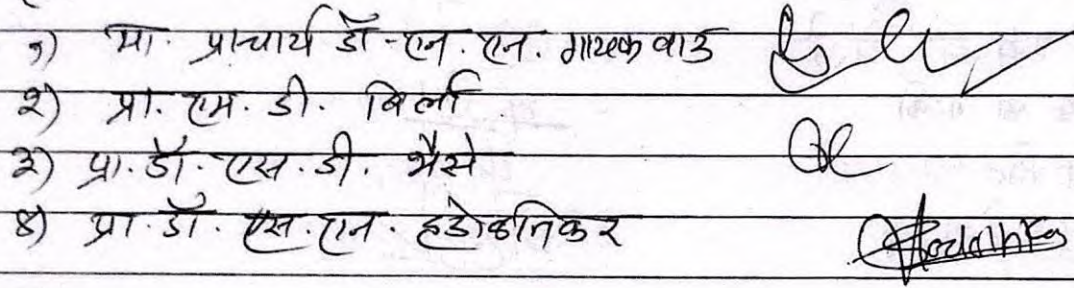 १) मा. प्राचार्य डॉ. एन. एन. गायकवाड
२) प्रा. एम. डी. बिर्ला
३) प्रा. डॉ. एस. डी. भैसे
४) प्रा. डॉ. एस. एन. हडोळतिकर